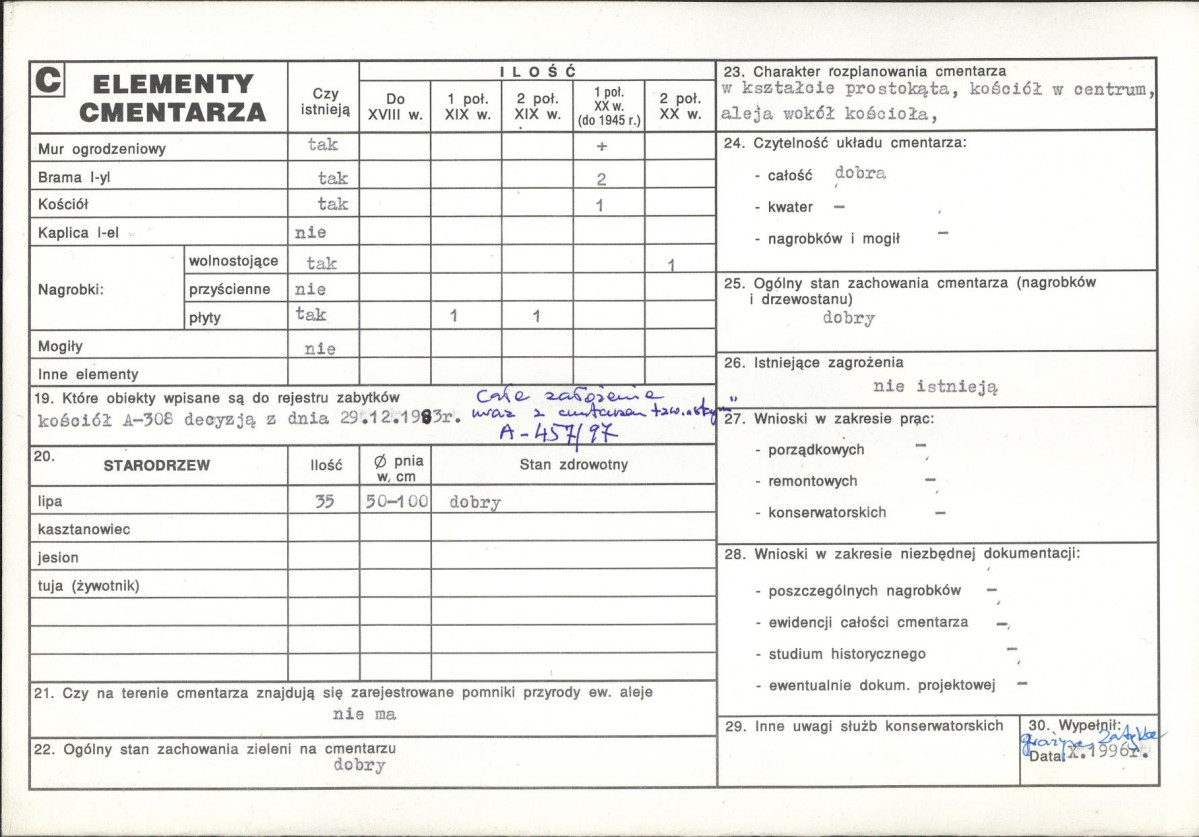 C ELEMENTY CMENTARZA
Czy istnieją
ILOŚĆ
Do XVIII w.
1 poł. XIX w.
2 poł. XIX w.
1 poł. XX w. (do 1945 r.)
2 poł. XX w.
Mur ogrodzeniowy tak +
Brama I-yl tak 2
Kościół tak 1
Kaplica I-el nie
Nagrobki:
wolnostojące tak 1
przyścienne nie
płyty tak 1 1
Mogiły nie
Inne elementy
19. Które obiekty wpisane są do rejestru zabytków
kościół A-308 decyzją z dnia 29.12.1983r.
całe założenie
wraz z cmentarzem tzw.
A-457/97
20. STARODRZEW Ilość Ø pnia w, cm Stan zdrowotny
lipa 35 50-100 dobry
kasztanowiec
jesion
tuja (żywotnik)
21. Czy na terenie cmentarza znajdują się zarejestrowane pomniki przyrody ew. aleje
nie ma
22. Ogólny stan zachowania zieleni na cmentarzu
dobry
23. Charakter rozplanowania cmentarza
w kształcie prostokąta, kościół w centrum,
aleja wokół kościoła,
24. Czytelność układu cmentarza:
- całość dobra
- kwater —
- nagrobków i mogił —
25. Ogólny stan zachowania cmentarza (nagrobków
i drzewostanu)
dobry
26. Istniejące zagrożenia
nie istnieją
27. Wnioski w zakresie prac:
- porządkowych —
- remontowych —
- konserwatorskich —
28. Wnioski w zakresie niezbędnej dokumentacji:
- poszczególnych nagrobków —
- ewidencji całości cmentarza —
- studium historycznego —
- ewentualnie dokum. projektowej —
29. Inne uwagi służb konserwatorskich
30. Wypełnił:
Grażyna
Data X.1996r.